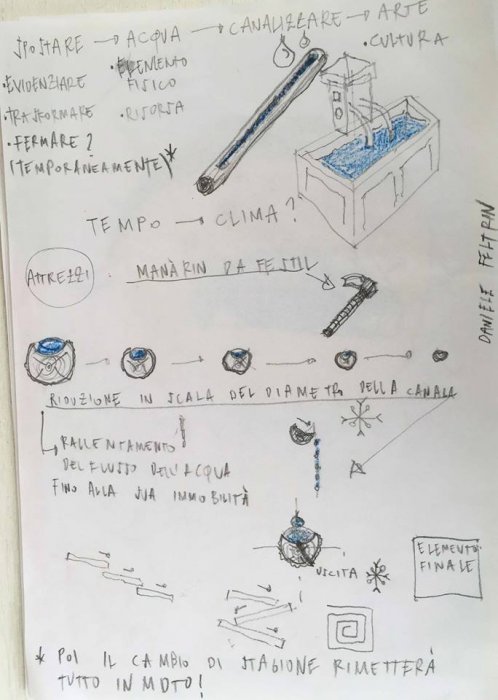 SPOSTARE → ACQUA → CANALIZZARE → ARTE
• EVIDENZIARE
• TRASFORMARE
• FERMARE?
(TEMPORANEAMENTE)*
• ELEMENTO
FISICO
• RISORSA
• CULTURA
TEMPO → CLIMA?
DANIELE FELTRIN
ATTREZZI
MANÀRIN DA FESTIL
RIDUZIONE IN SCALA DEL DIAMETRO DELLA CANALA
RALLENTAMENTO
DEL FLUSSO DELL'ACQUA
FINO ALLA SUA IMMOBILITÀ
USCITA
ELEMENTO
FINALE
* POI IL CAMBIO DI STAGIONE RIMETTERÀ
TUTTO IN MOTO!